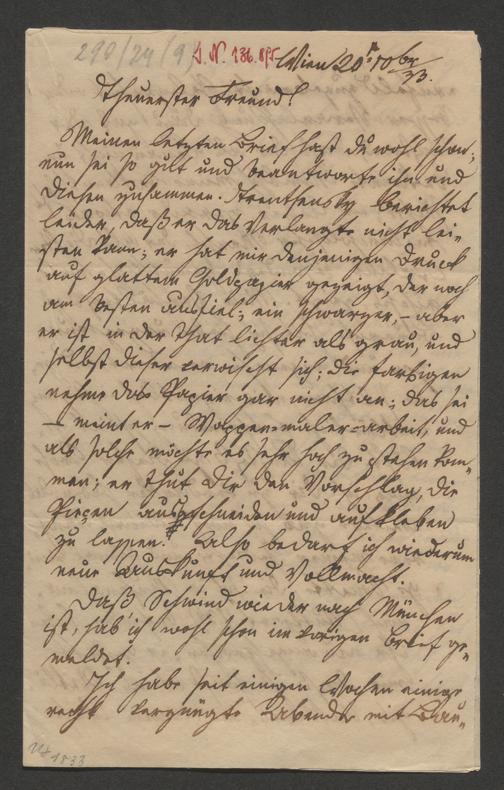 290/24 (9) I. N. 136.875 Wien 20t 10br
33.
Theuerster Freund!
Meinen letzten Brief hast du wohl schon;
nun sei so gut und beantworte ihn und
diesen zusammen. Trentsensky berichtet
leider, daß er das Verlangte nicht lei-
sten kann; er hat mir denjenigen Druck
auf glattem Goldpapier gezeigt, der noch
am besten ausfiel; ein schwarzer, – aber
er ist in der That lichter als grau, und
selbst dieser verwischt sich; die farbigen
nehme das Papier gar nicht an; das sei
– meint er – Wappen-maler-arbeit, und
als solche möchte es sehr hoch zu stehen kom-
men; er thut Dir den Vorschlag, die
Piecen ausschneiden und aufkleben
zu lassen. Also bedarf ich wiederum
neue Auskunft und Vollmacht.
Daß Schwind wieder nach München
ist, hab ich wohl schon im vorigen Brief ge-
meldet.
Ich habe seit einigen Wochen einige
recht vergnügte Abende mit Bau-
1833